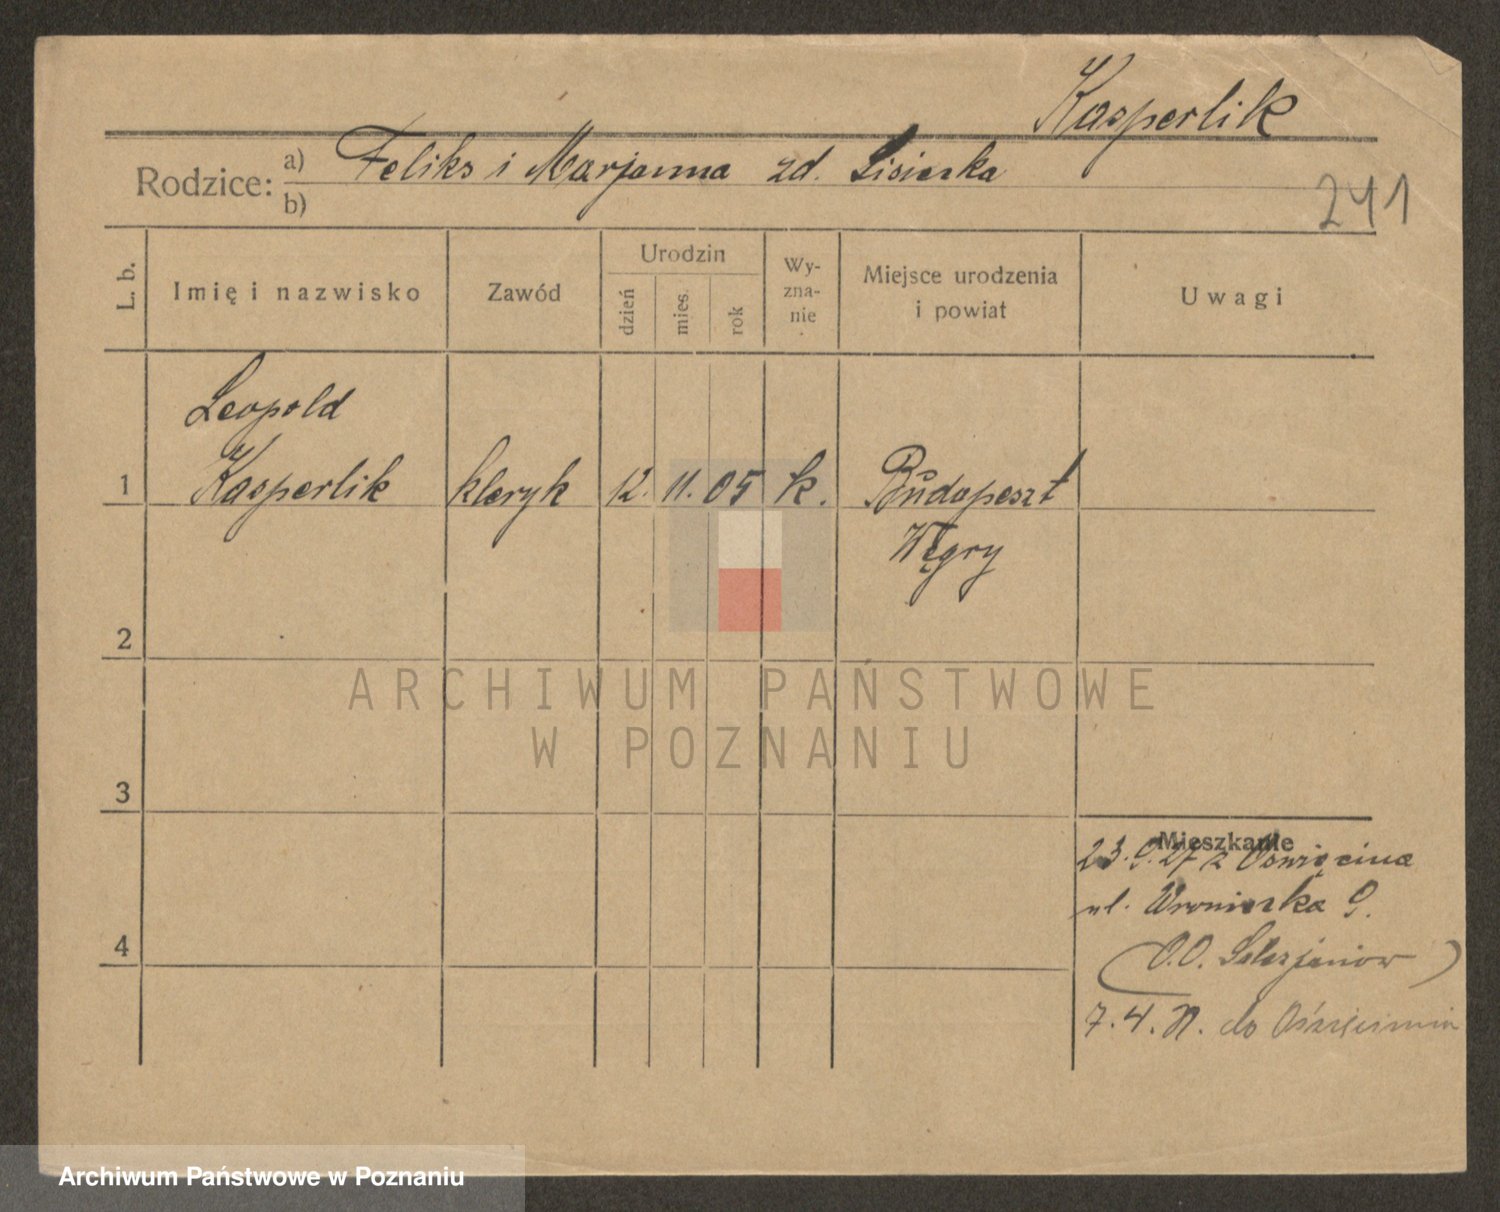 Kasperlik
Rodzice: a) Feliks i Marjanna zd. Lisieska
b)
241
L. b.
Imię i nazwisko
Zawód
Urodzin
dzień
mies.
rok
Wy-
zna-
nie
Miejsce urodzenia
i powiat
Uwagi
Leopold
1 Kasperlik kleryk 12. 11. 05 k. Budapeszt
Węgry
2
ARCHIWUM PAŃSTWOWE
W POZNANIU
3
Mieszkanie
23.9.27 z Oświęcima
ul. Wroniecka 9.
(O.O. Salezjanów)
4
7.4. do Oświęcimia
Archiwum Państwowe w Poznaniu